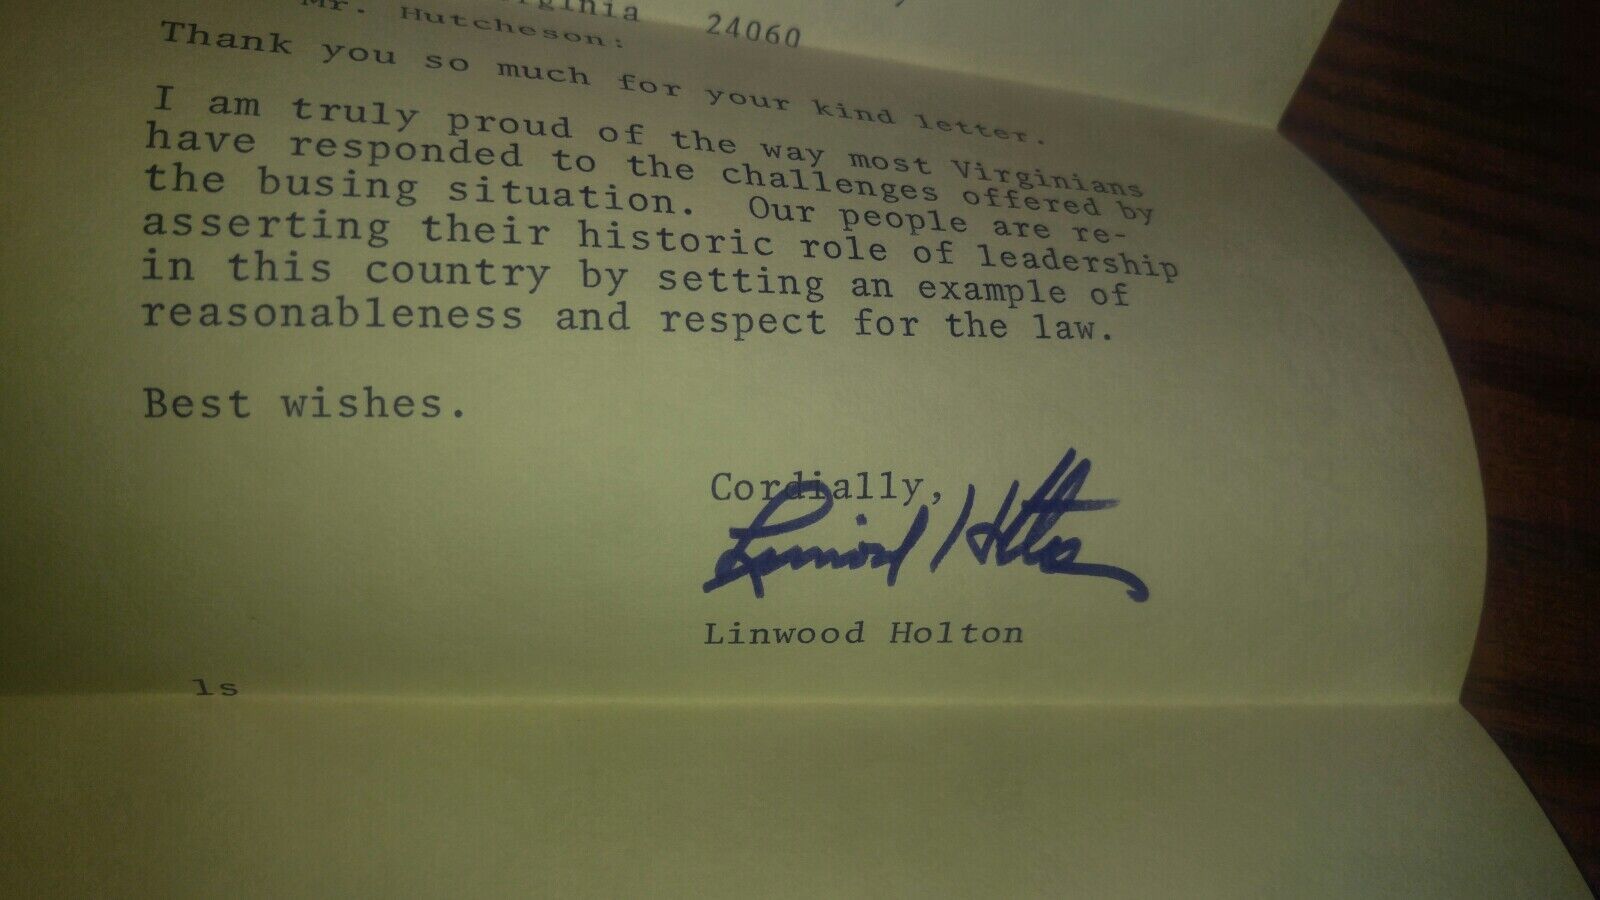 24060
Mr. Hutcheson:
Thank you so much for your kind letter.
I am truly proud of the way most Virginians
have responded to the challenges offered by
the busing situation. Our people are re-
asserting their historic role of leadership
in this country by setting an example of
reasonableness and respect for the law.
Best wishes.
Cordially,
Linwood Holton
Linwood Holton
ls